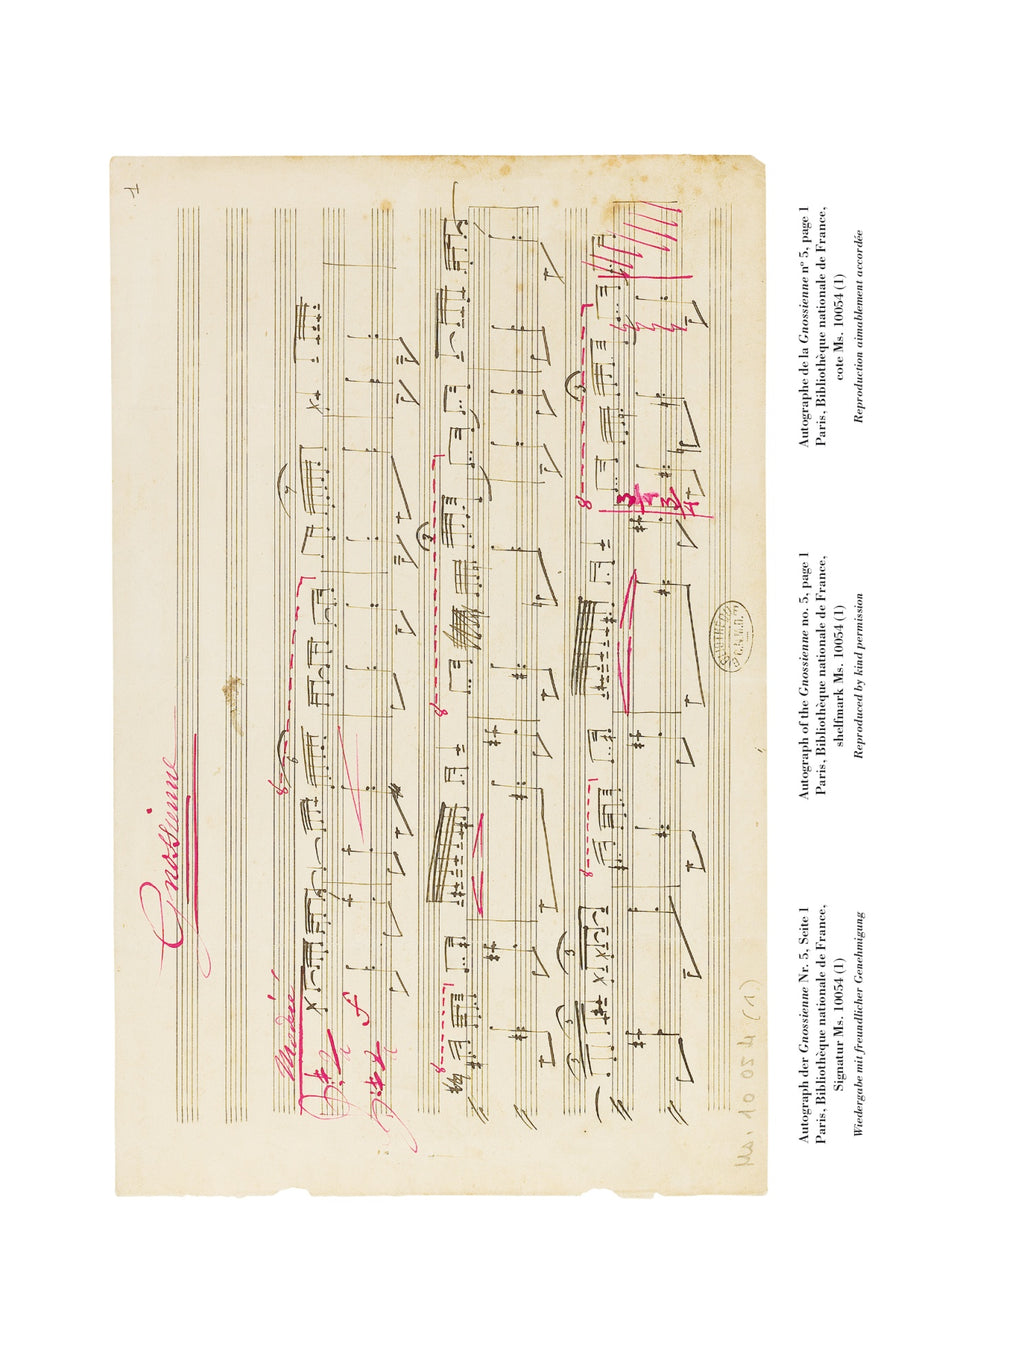 1
Gnossienne
Modéré
7
6
8
8
3
8
3
3
8
8
3
3/4
3/4
Ms. 10 054 (1)
Autograph der Gnossienne Nr. 5, Seite 1
Paris, Bibliothèque nationale de France,
Signatur Ms. 10054 (1)
Wiedergabe mit freundlicher Genehmigung
Autograph of the Gnossienne no. 5, page 1
Paris, Bibliothèque nationale de France,
shelfmark Ms. 10054 (1)
Reproduced by kind permission
Autographe de la Gnossienne nº 5, page 1
Paris, Bibliothèque nationale de France,
cote Ms. 10054 (1)
Reproduction aimablement accordée